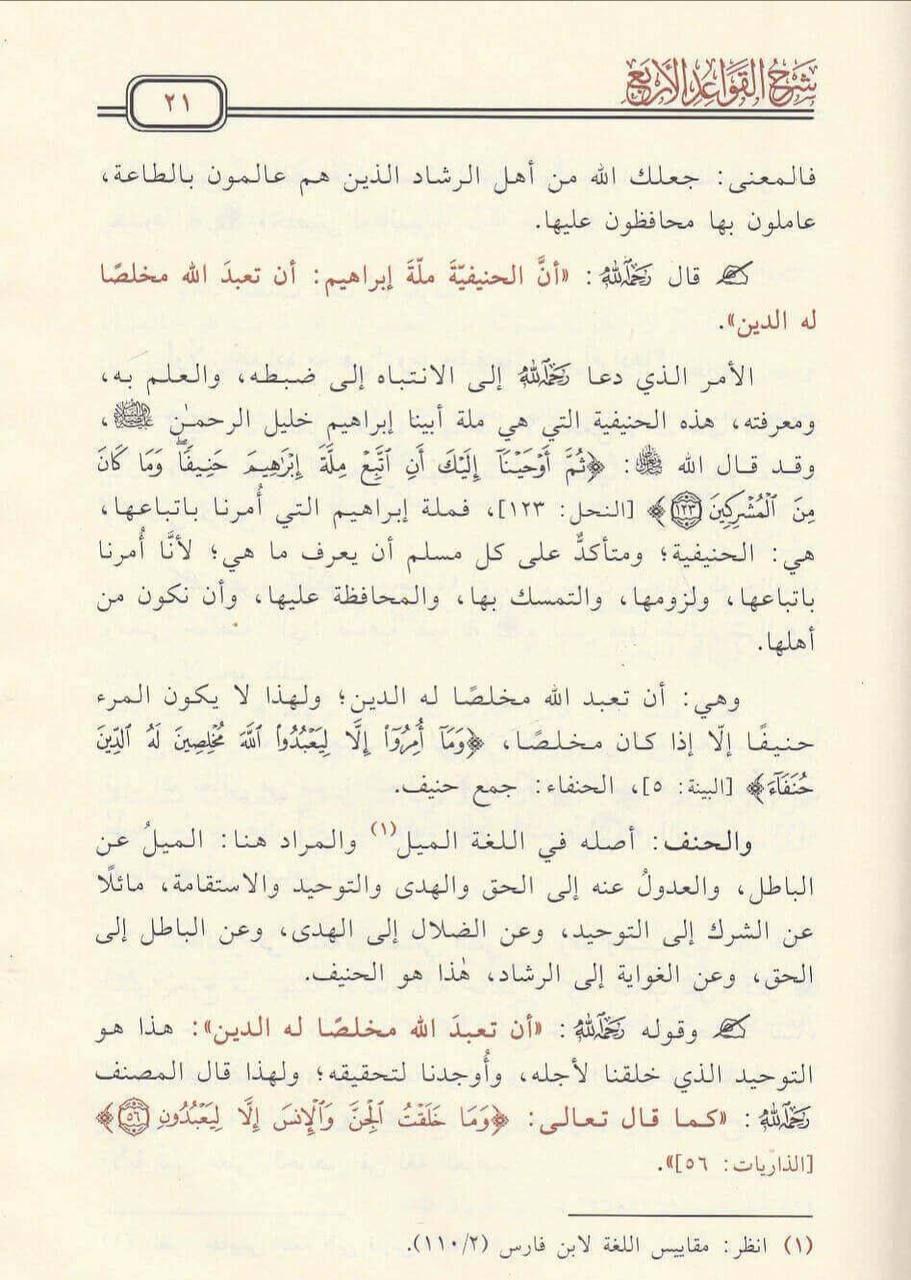 شَرْحُ القَوَاعِدِ الأَرْبَعِ
٢١
فالمعنى: جعلك الله من أهل الرشاد الذين هم عالمون بالطاعة،
عاملون بها محافظون عليها.
قال رَحِمَهُ اللهُ: «أنَّ الحنيفيّةَ ملّةَ إبراهيم: أن تعبدَ الله مخلصًا
له الدين».
الأمر الذي دعا رَحِمَهُ اللهُ إلى الانتباه إلى ضبطه، والعلم به،
ومعرفته، هذه الحنيفية التي هي ملة أبينا إبراهيم خليل الرحمـٰن ،
وقد قال الله : ﴿ثُمَّ أَوْحَيْنَآ إِلَيْكَ أَنِ ٱتَّبِعْ مِلَّةَ إِبْرَٰهِيمَ حَنِيفًاۖ وَمَا كَانَ
مِنَ ٱلْمُشْرِكِينَ ١٢٣﴾ [النحل: ١٢٣]، فملة إبراهيم التي أُمرنا باتباعها،
هي: الحنيفية؛ ومتأكدٌ على كل مسلم أن يعرف ما هي؛ لأنَّا أُمرنا
باتباعها، ولزومها، والتمسك بها، والمحافظة عليها، وأن نكون من
أهلها.
وهي: أن تعبد الله مخلصًا له الدين؛ ولهذا لا يكون المرء
حنيفًا إلّا إذا كان مخلصًا، ﴿وَمَآ أُمِرُوٓا۟ إِلَّا لِيَعْبُدُوا۟ ٱللَّهَ مُخْلِصِينَ لَهُ ٱلدِّينَ
حُنَفَآءَ﴾ [البينة: ٥]، الحنفاء: جمع حنيف.
والحنف: أصله في اللغة الميل(١) والمراد هنا: الميلُ عن
الباطل، والعدولُ عنه إلى الحق والهدى والتوحيد والاستقامة، مائلًا
عن الشرك إلى التوحيد، وعن الضلال إلى الهدى، وعن الباطل إلى
الحق، وعن الغواية إلى الرشاد، هٰذا هو الحنيف.
وقوله رَحِمَهُ اللهُ: «أن تعبدَ الله مخلصًا له الدين»: هذا هو
التوحيد الذي خلقنا لأجله، وأُوجدنا لتحقيقه؛ ولهذا قال المصنف
رَحِمَهُ اللهُ: «كما قال تعالى: ﴿وَمَا خَلَقْتُ ٱلْجِنَّ وَٱلْإِنسَ إِلَّا لِيَعْبُدُونِ ٥٦﴾
[الذاريات: ٥٦]».
(١) انظر: مقاييس اللغة لابن فارس (١١٠/٢).